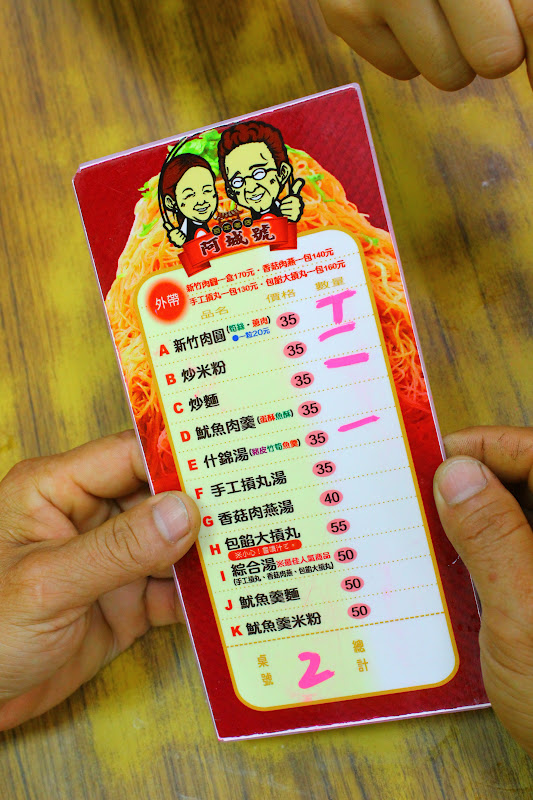 阿城號
外帶
新竹肉圓一盒170元‧香菇肉燕一包140元
手工摃丸一包130元‧包餡大摃丸一包160元
品名 價格 數量
A 新竹肉圓 (筍絲‧蔥肉) 35 T
●一粒20元
B 炒米粉 35 二
C 炒麵 35 一
D 魷魚肉羹 (蛋酥魚酥) 35
E 什錦湯 (豬皮竹筍魚羹) 35 一
F 手工摃丸湯 35
G 香菇肉燕湯 40
H 包餡大摃丸 55
※小心!會噴汁ㄛ。
I 綜合湯 ※最佳人氣商品 50
(手工摃丸、香菇肉燕、包餡大摃丸)
J 魷魚羹麵 50
K 魷魚羹米粉 50
桌號 2 總計